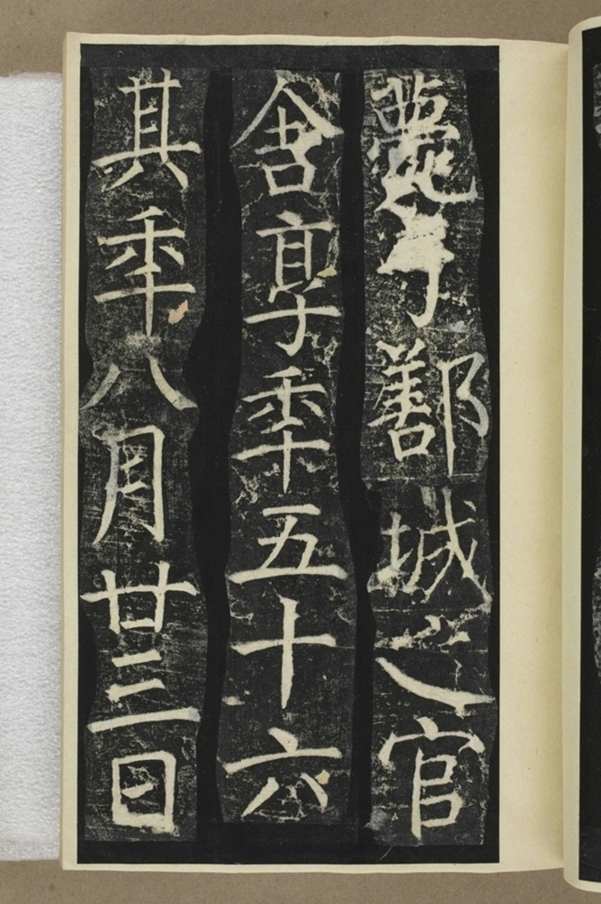 薨于鄯城之官
舍享年五十六
其年八月廿三日